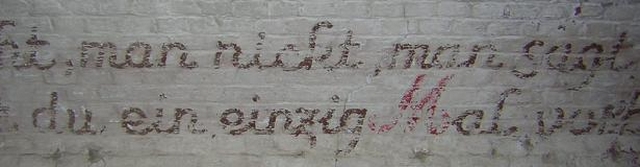 ht, man nicht, man sagt
du ein einzig Mal, vom